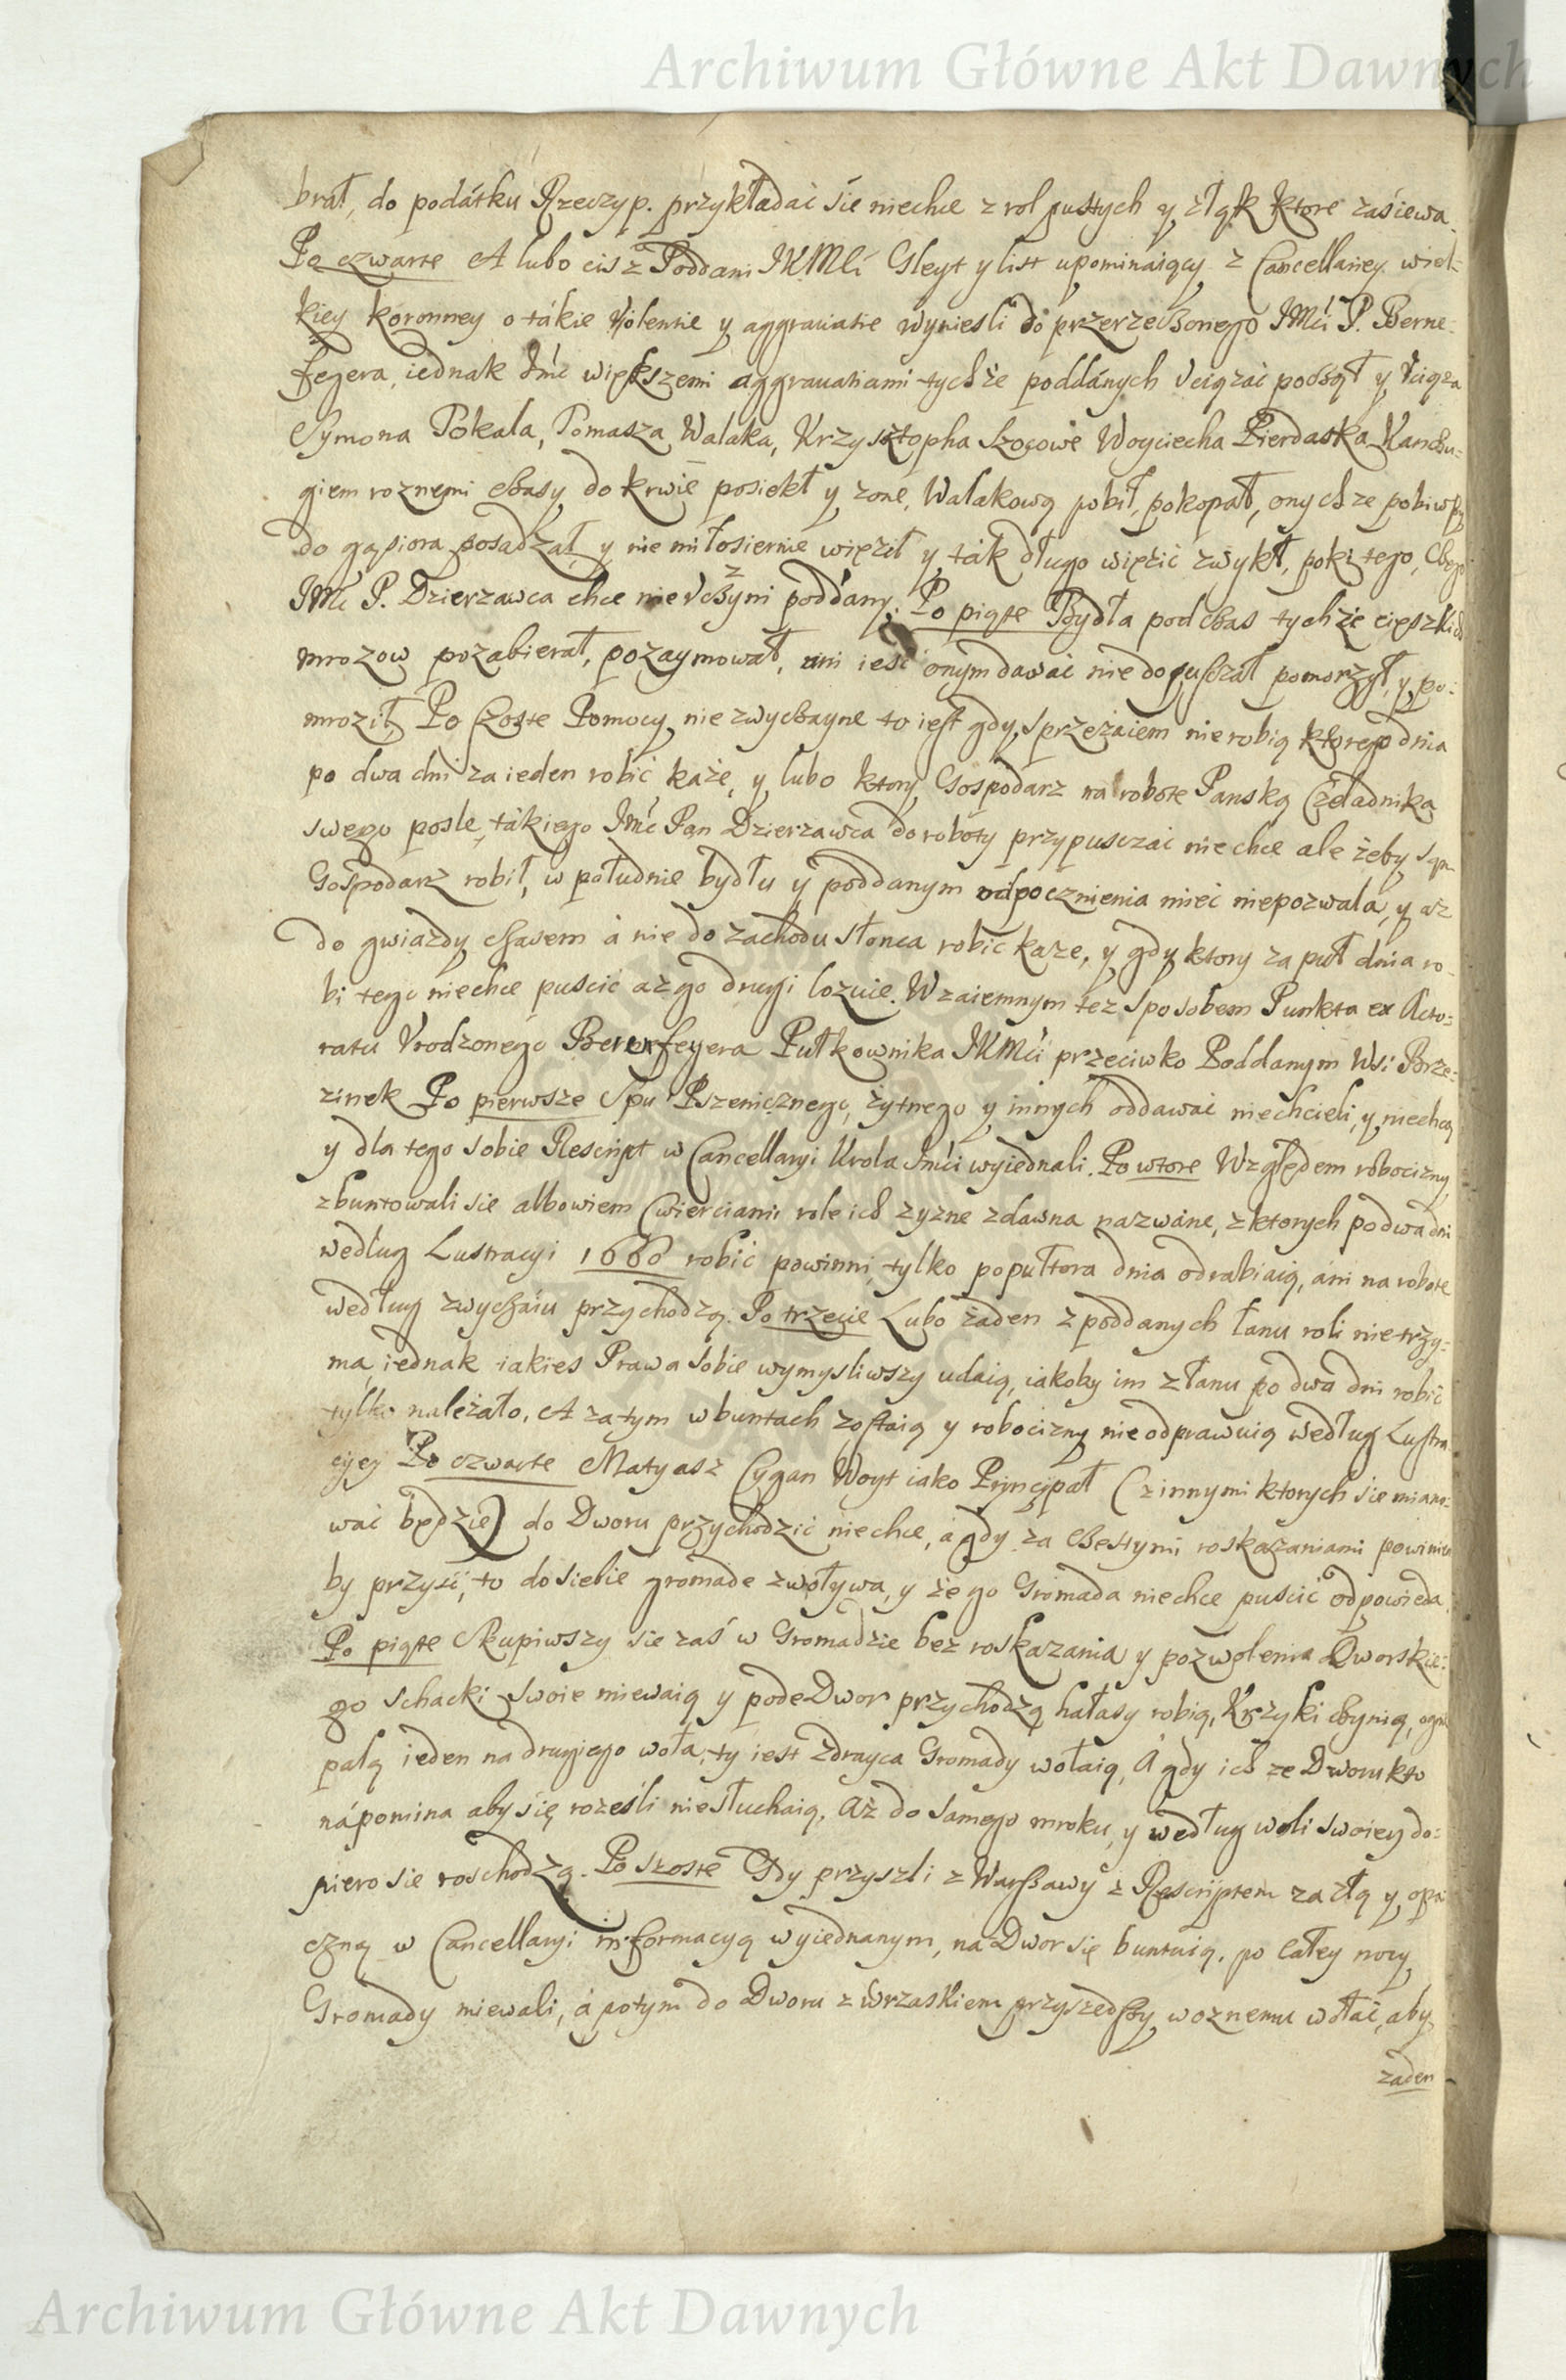 Archiwum Główne Akt Dawnych
brał, do podátku Rzeczyp. przykładać sie niechce z rol pustych y z łąk ktore zasiewa.
Po czwarte A lubo ciż Poddani JKMCi Gleyt y list upominaiący z Cancellariey wiel-
kiey koronney o tákie violentie y aggrauatie wyniesli do przerzeczonego JMCi P. Berne-
feyera, iednak Jmć większemi aggrauatiami tychże poddánych vciązać począł y vciąza
Symona Pokala, Tomasza Walaka, Krzysztopha Szocowe Woyciecha Pierdaska Kanczu-
giem roznemi czasy do krwie posiekł y zone Walakową pobił, pokopał, onychze pobiwszy
do gąsiora posadzał y nie miłosiernie więził y ták długo więzić zwykł, poki tego, czego
JMć P. Dzierzawca chce nie vczyni poddany. Po piąte Bydła podczas tychże cięszkich
mrozow pozabierał, pozaymował, ani ieść onym dawać niedopuszczał pomorzył, y po-
mroził, Po szoste Pomocy nie zwyczayne to iest gdy sprzężaiem nierobią ktorego dnia
po dwa dni za ieden robić każe, y lubo ktory Gospodarz na robote Panską Czeladnika
swego posle, tákiego JMć Pan Dzierzawca do roboty przypuszczać niechce ale żeby sam
Gospodarz robił, w południe bydłu y poddanym odpocznienia mieć niepozwala, y aż
do gwiazdy czasem á nie do zachodu słonca robić kaze, y gdy ktory za puł dnia ro-
bi tego niechce puscić aż go drugi lozuie. Wzaiemnym też sposobem Punkta ex Acto-
ratu Vrodzonego Bernefeyera Pułkownika JKMCi przeciwko Poddanym Wsi Brze-
zinek Po pierwsze Spu Pszenicznego, żytnego y innych oddawać niechcieli, y niechcą
y dla tego sobie Rescript w Cancellaryi Krola Jmći wyiednali. Po wtore Względem robocizny
zbuntowali sie albowiem Cwierciami role ich zyzne zdawna nazwáne, z ktorych po dwa dni
według Lustracyi 1660 robić powinni, tylko po pułtora dnia odrabiaią, áni na robote
według zwyczáiu przychodzą. Po trzecie Lubo żaden z poddanych łanu roli nie trzy-
ma, iednak iakies Prawa sobie wymysliwszy udaią, iakoby im z łanu po dwa dni robić
tylko należało. A zatym w buntach zostaią y robocizny nie odprawuią według Lustra
cyey Po czwarte Matyasz Cygan Woyt iako Pryncypał (z innymi ktorych sie miano-
wać będzie) do Dworu przychodzić niechce, á gdy za czestymi roskazaniami powinien
by przyść, to do siebie gromade zwoływa, y że go Gromada niechce puscić odpowieda.
Po piąte Skupiwszy sie zaś w Gromadzie bez roskazania y pozwolenia Dworskie-
go schacki swoie miewaią y pode Dwor przychodzą hałasy robią, Krzyki czynią, ognie
palą ieden na drugiego woła, ty iest zdrayca Gromady wołaią, A gdy ich ze Dworu kto
nápomina aby się roześli niesłuchaią. Aż do samego mroku, y według woli swoiey do-
piero sie roschodzą. Po szoste Gdy przyszli z Warszawy z Rescriptem za złą y opa
czną w Cancellaryi informacyą wyiednanym, na Dwor się buntuią, po całey nocy
Gromady miewali, á potym do Dworu z wrzaskiem przyszedszy woznemu wołać, aby
zaden
Archiwum Główne Akt Dawnych